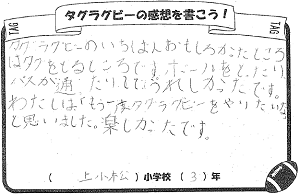 タグラグビーの感想を書こう！
TAG
TAG
タグラグビーのいちばんおもしろかたところ
はタグをとるところです。ボールをとったり
パスが通ったりしてうれしかったです。
わたしは「もう一度タグラグビーをやりたいな」
と思いました。楽しかったです。
（ 上小松 ）小学校（ 3 ）年